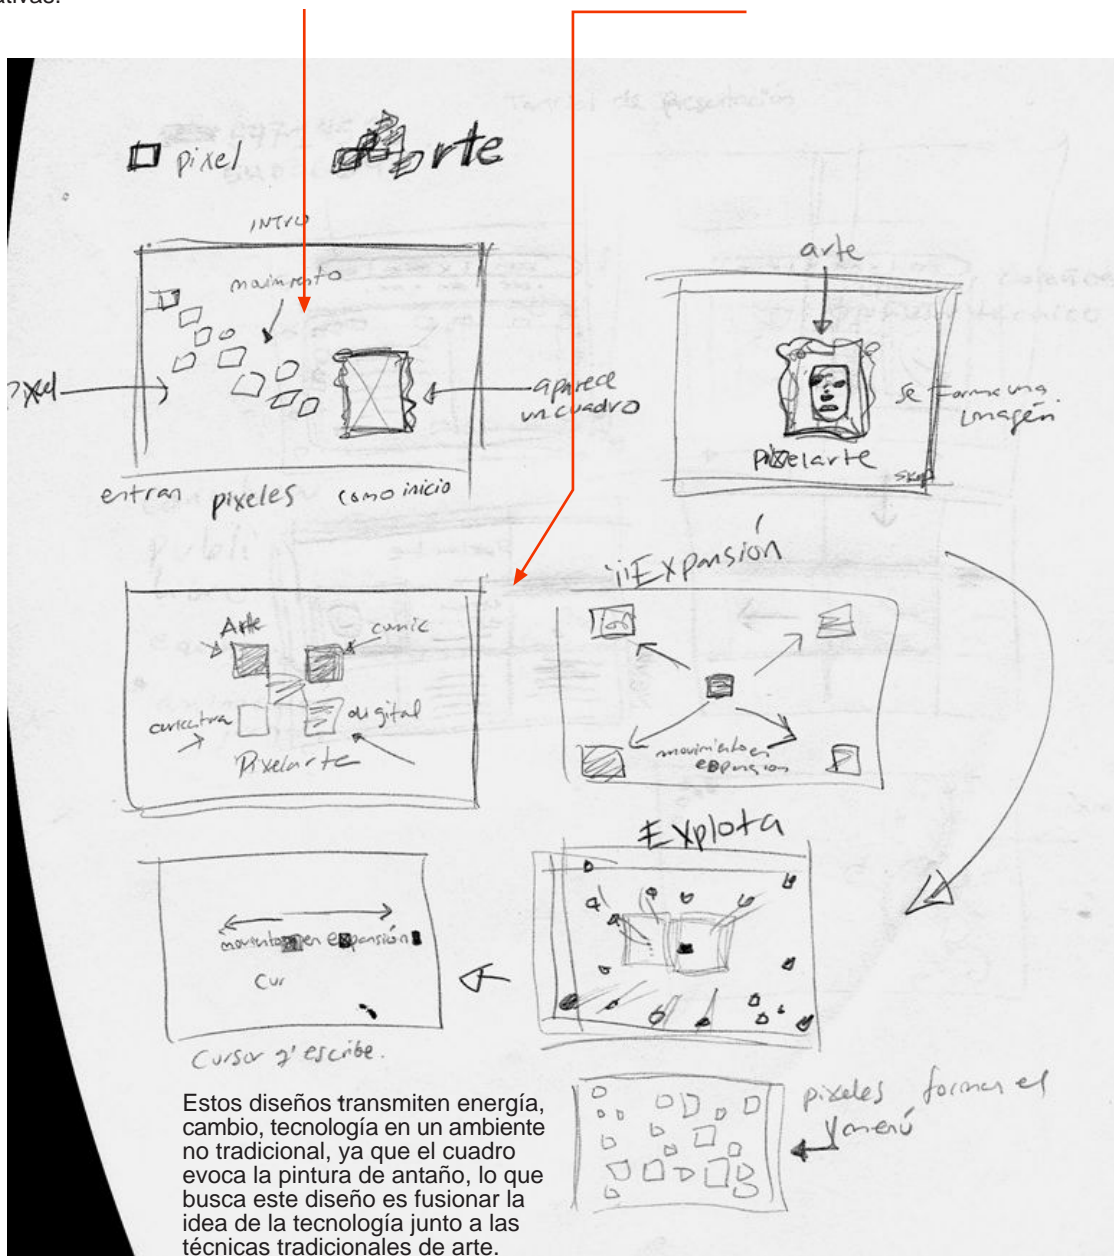 ativas.
pixel
Arte
INTRO
movimiento
pixel
aparece
un cuadro
entran pixeles como inicio
arte
se forma una
imagen.
pixelarte
Skip
¡¡Expansión
Arte
comic
caricatura
digital
Pixelarte
movimiento en
expansion
Explota
movimiento en expansión
Cur
Cursor q' escribe.
pixeles forman el
menú
Estos diseños transmiten energía,
cambio, tecnología en un ambiente
no tradicional, ya que el cuadro
evoca la pintura de antaño, lo que
busca este diseño es fusionar la
idea de la tecnología junto a las
técnicas tradicionales de arte.